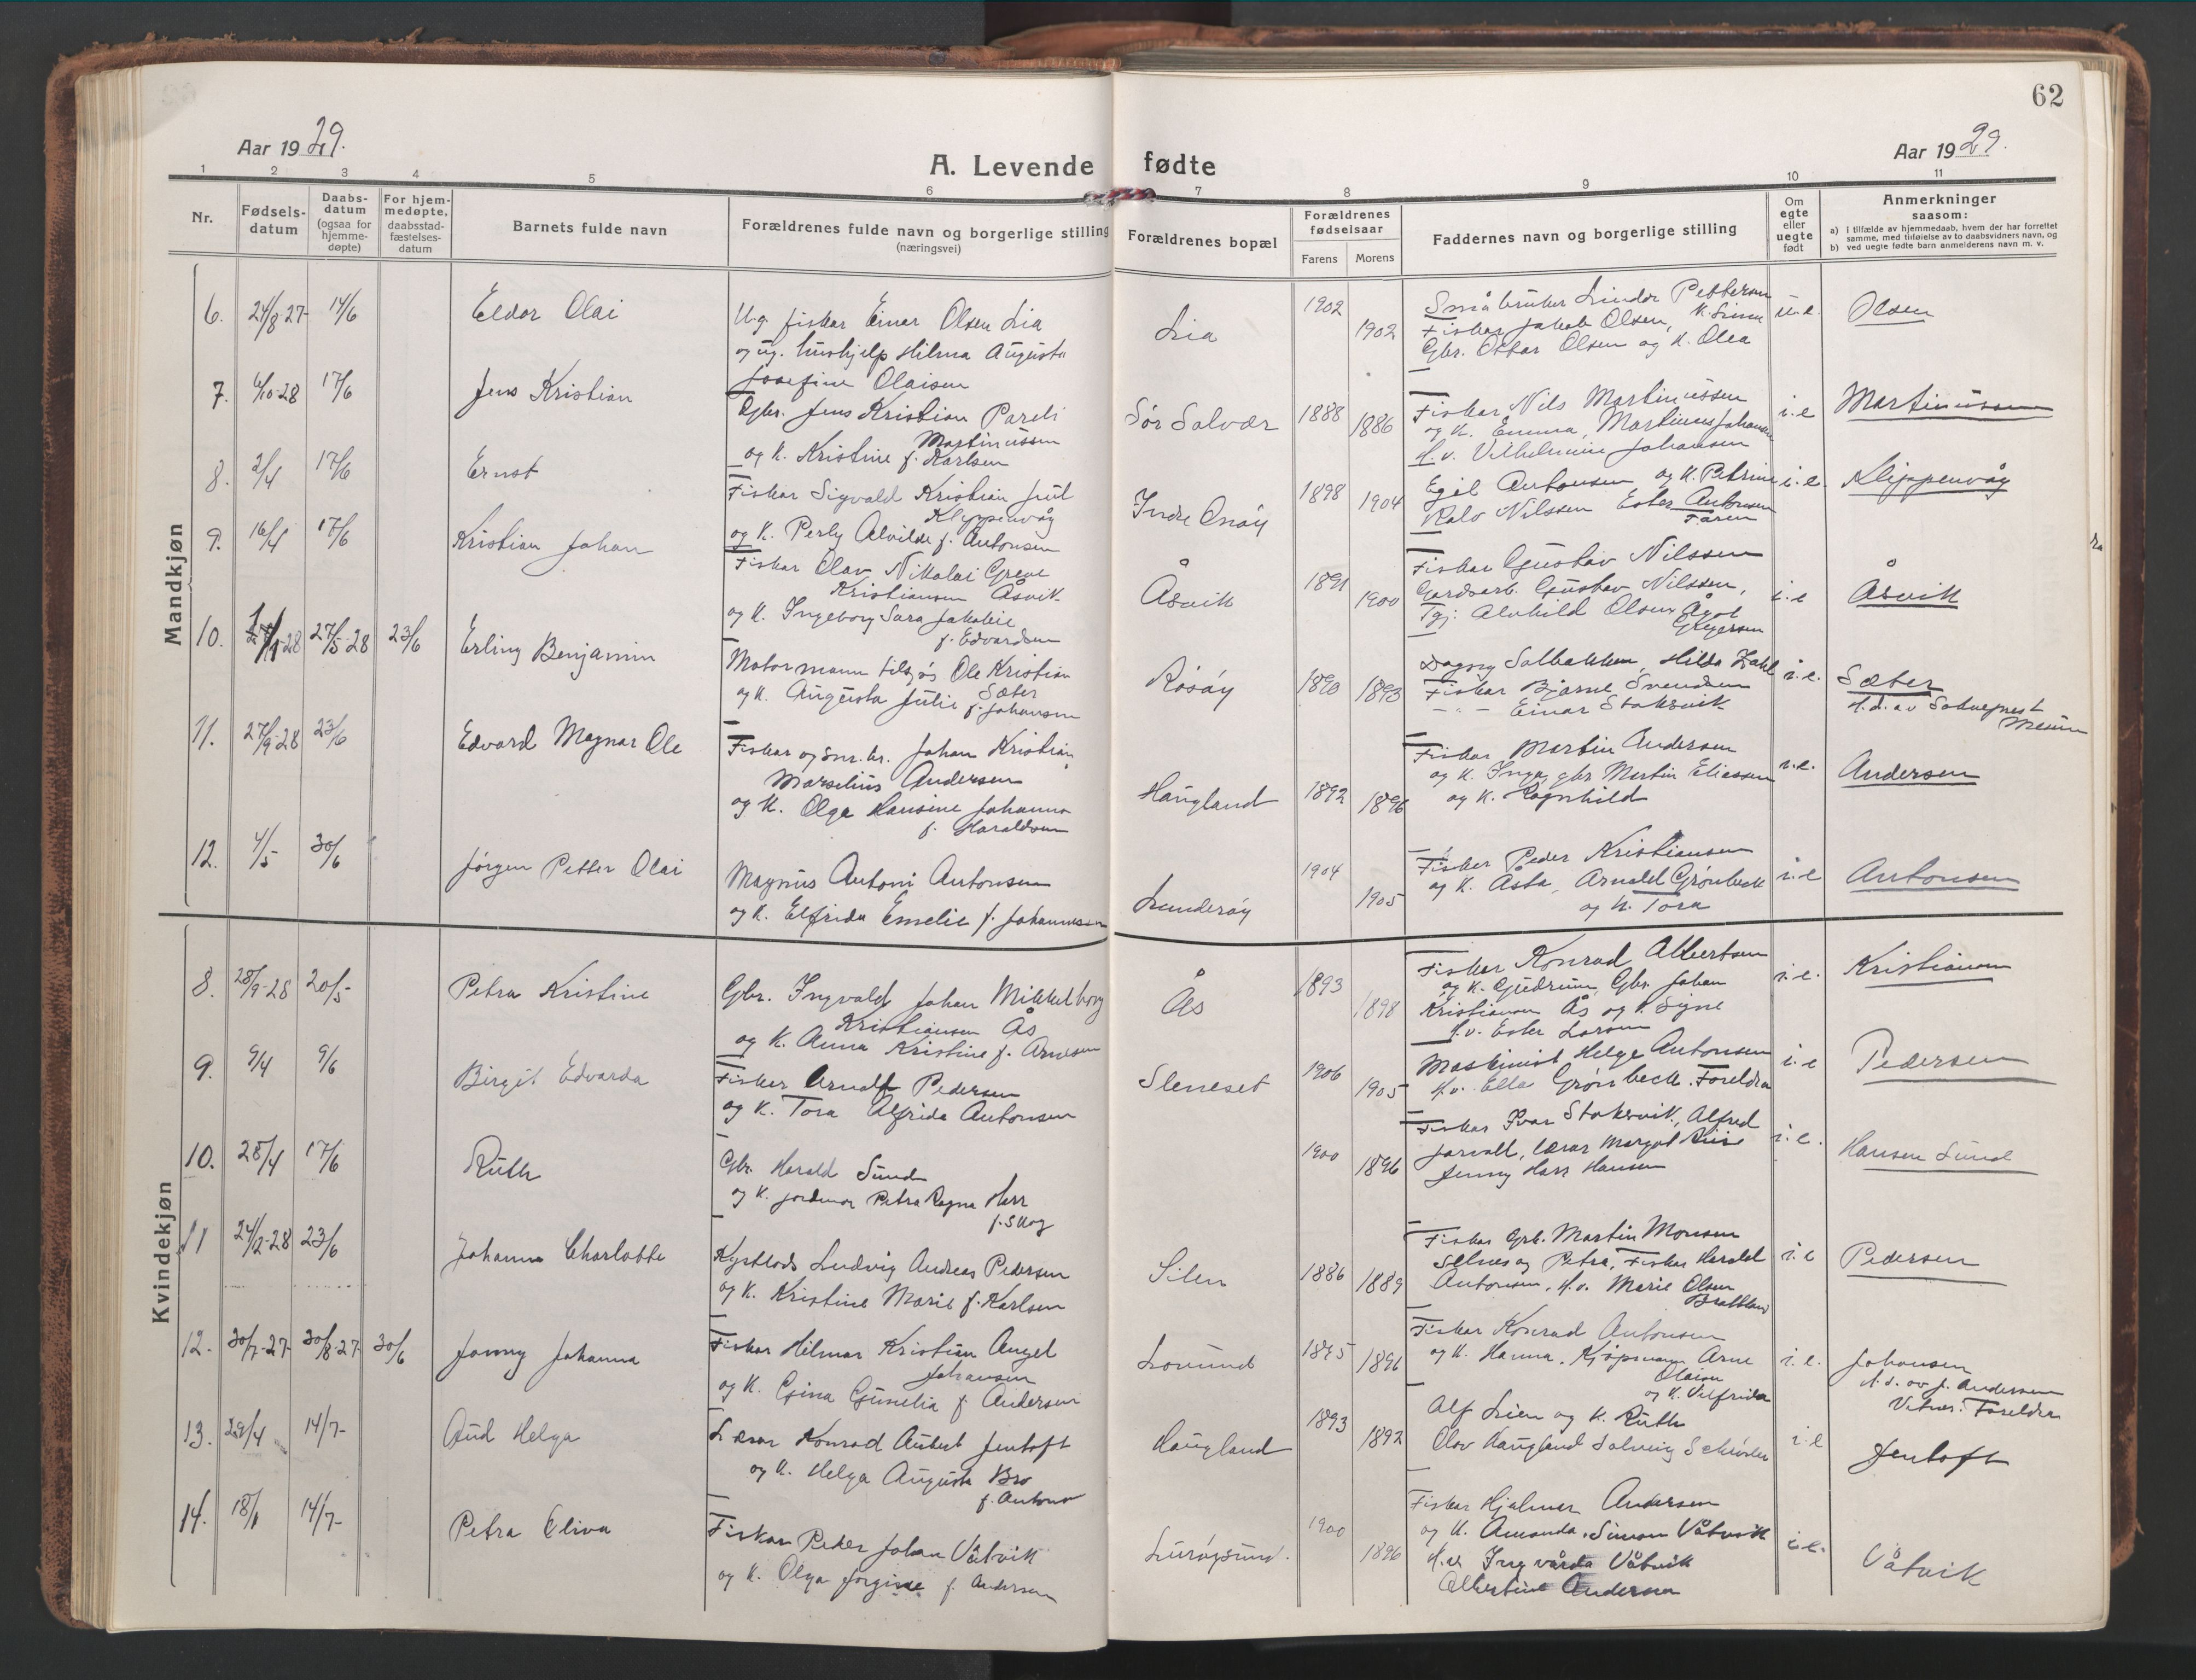 62
Aar 1929.
A. Levende fødte
Aar 1929.
1 2 3 4 5 6 7 8 9 10 11
Nr.
Fødsels-
datum
Daabs-
datum
(ogsaa for
hjemme-
døpte)
For hjem-
medøpte,
daabsstad-
fæstelses-
datum
Barnets fulde navn
Forældrenes fulde navn og borgerlige stilling
(næringsvei)
Forældrenes bopæl
Forældrenes
fødselsaar
Farens Morens
Faddernes navn og borgerlige stilling
Om
egte
eller
uegte
født
Anmerkninger
saasom:
a) i tilfælde av hjemmedaab, hvem der har forrettet
samme, med tilføielse av to daabsvidners navn, og
b) ved uegte fødte barn anmelderens navn m. v.
Mandkjøn
6. 24/8-27 14/6 Eldor Olai
Ug. fisker Einar Olsen Lia
og ug. hushjelp Hilma Augusta
Josefine Olaisen
Lia 1902 1902
Småbruker Lindor Pettersen
Fisker Jakob Olsen,
Gbr. Ottar Olsen og K. Olea
u.e. Olsen
7. 4/10-28 17/6 Jens Kristian
Gbr. Jens Kristian Pareli
Martinussen
og K. Kristine f. Karlsen
Sør Solvær 1888 1886
Fisker Nils Martinussen
og K. Emma, Martinus Johansen
H.v. Vilhelmine Johansen
i.e Martinussen
8. 2/4 17/6 Ernst
Fisker Sigvald Kristian Juul
Kleppenvåg
og K. Perly Alvilde f. Antonsen
Indre Onøy 1898 1904
Egil Antonsen og K. Petrine
Ralv Nilssen Ester Antonsen
Faren
i.e. Kleppenvåg
9. 16/4 17/6 Kristian Johan
Fisker Olav Nikolai Greve
Kristiansen Åsvik
og K. Ingeborg Sara Jakobie
f. Edvardsen
Åsvik 1891 1900
Fisker Gustav Nilssen
Gardsarb. Gustav Nilssen,
Tgj. Alvhild Olsen Ågot
Gregersen
i.e Åsvik
10. 27/5-28 23/6 Erling Benjamin
Motormann tilsjøs Ole Kristian
Sæter
og K. Augusta Julie f. Johansen
Rosøy 1890 1893
Dagny Solbakken, Hilda Zahl
Fisker Bjarne Svendsen
- " - Einar Stoksvik
i.e. Sæter
H.d. av Sokneprest
11. 27/9-28 23/6 Edvard Magnar Ole
Fisker og sm.br. Johan Kristian
Marselius Andersen
og K. Olga Hansine Johanna
f. Haraldsen
Haugland 1892 1896
Fisker Martin Andersen
og K. Inga, gbr. Martin Eliassen
og K. Ragnhild
i.e. Andersen
12. 4/5 30/6 Jørgen Petter Olai
Magnus Antoni Antonsen
og K. Elfrida Emelie f. Johannesen
Lunderøy 1904 1905
Fisker Peder Kristiansen
og K. Åsta, Arnold Grønbeck
og K. Tora
i.e Antonsen
Kvindekjøn
8. 28/9-28 20/5 Petra Kristine
Gbr. Ingvald Johan Mikkelborg
Kristiansen Ås
og K. Anna Kristine f. Arnesen
Ås 1893 1898
Fisker Konrad Albertsen
og K. Gudrun, Gbr. Johan
Kristiansen Ås og K. Signe
H.v. Ester Larsen
i.e. Kristiansen
9. 9/4 9/6 Birgit Edvarda
Fisker Arnulf Pedersen
og K. Tora Alfrida Antonsen
Sleneset 1906 1905
Maskinist Helge Antonsen
H.v. Ella Grønbeck. Foreldra
i.e Pedersen
10. 28/4 17/6 Ruth
Gbr. Harald Sund
og K. jordmor Petra Ragna Harr
f. Skog
1900 1896
Fisker Ivar Stoksvik, Alfred
Jarvoll, lærar Margot
Jenny Harr Hansen
i.e. Hansen Sund
11 24/12-28 23/6 Johanna Charlotte
Kystlods Ludvig Andreas Pedersen
og K. Kristine Marie f. Karlsen
Silen 1886 1889
Fisker Grb. Martin Monsen
Selnes og Petra, Fisker Harald
Antonsen, H.v. Marie Olsen
Bratland
i.e Pedersen
12. 30/7-27 30/8-27 30/6 Jonny Johanna
Fisker Hilmar Kristian Angel
Johansen
og K. Gina Gunelia f. Andersen
Lovund 1895 1896
Fisker Konrad Antonsen
og K. Hanna, Kjøpmann Arne
Olaisen
og K. Vilfrida
i.e. Johansen
H.d. av J. Andersen
Vitner: Foreldra
13. 29/4 14/7 Aud Helga
Lærar Konrad Aubert Jentoft
og K. Helga Augusta Bro
f. Antons
Haugland 1893 1892
Alf Lien og K. Ruth
Olav Haugland Solveig Schrøder
i.e Jentoft
14. 18/1 14/7 Petra Oliva
Fisker Peder Johan Våtvik
og K. Olga Jorgine f. Andersen
Lurøysund. 1900 1896
Fisker Hjalmar Andersen
og K. Amanda, Simon Våtvik
H.v. Ingvarda Våtvik
Albertine Andersen
i.e. Våtvik